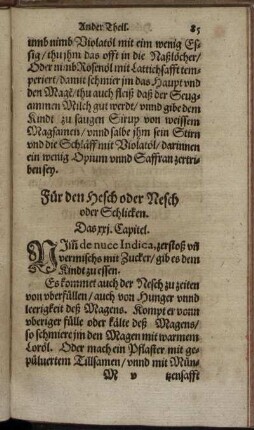 Ander Theil. 85
umb nimb/ Violatöl mit eim wenig Es-
sig/ thu jhm das offt in die Naßlöcher/
Oder nimb Rosenöl mit Lattichsafft tem-
periert/ damit schmier jm das Haupt vnd
den Mage/ thu auch fleiß daß der Seug-
ammen Milch gut werdt/ vnnd gibe dem
Kindt zu saugen Sirup von weissem
Magsamen/ vnnd salbe jhm sein Stirn
vnd die Schläff mit Violatöl/ darinnen
ein wenig Opium vnnd Saffran zertri-
ben sey.
Für den Hesch oder Nesch
oder Schlicken.
Das xxj. Capitel.
NJm̄ de nuce Indica, zerstoß vn̄
vermischs mit Zucker/ gib es dem
Kindt zu essen.
Es kommet auch der Nesch zu zeiten
von vberfüllen/ auch von Hunger vnnd
leerigkeit deß Magens. Kompt er vonn
vberiger fülle oder kälte deß Magens/
so schmier jm den Magen mit warmem
Loröl. Oder mach ein Pflaster mit ge-
pülvertem Tillsamen/ vnnd mit Mün-
M v tzensafft